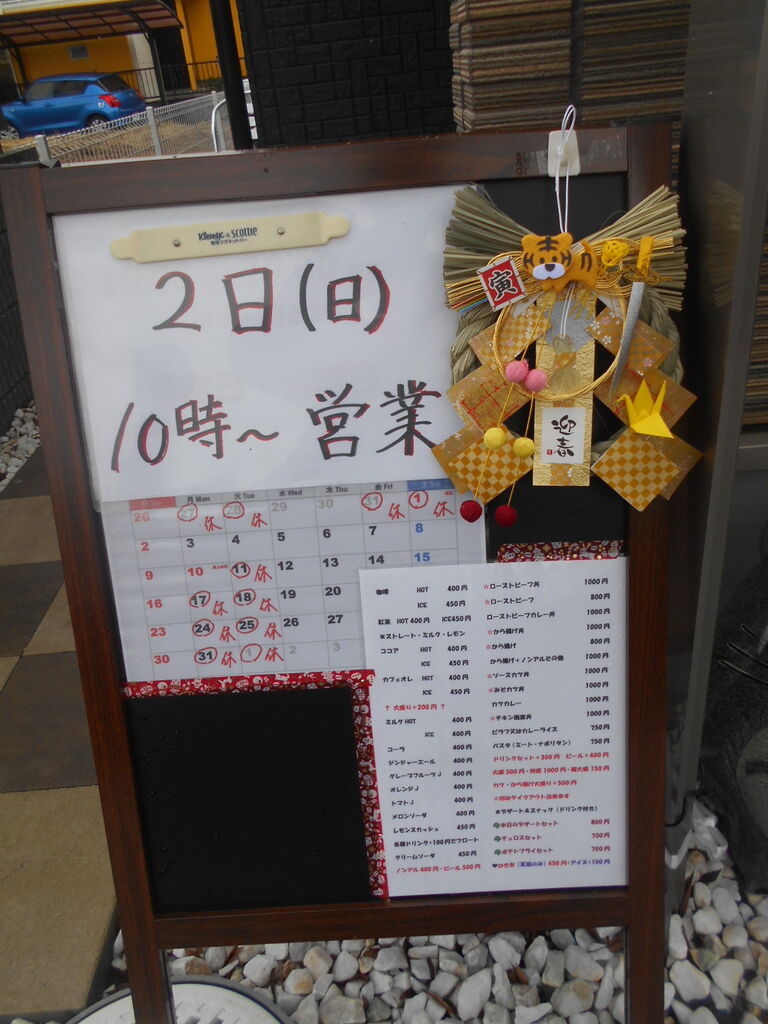 Kleenex & SCOTTIE
専用マグネットバー
2日(日)
10時~ 営業
寅
迎春
月 Mon 火 Tue 水 Wed 木 Thu 金 Fri 土
26 27 休 28 休 29 30 31 休 1 休
2 3 4 5 6 7 8
9 10 成人の日 11 休 12 13 14 15
16 17 休 18 休 19 20
23 24 休 25 休 26 27
30 31 休 1 休 2 3
珈琲 HOT 400円
ICE 450円
紅茶 HOT 400円 ICE 450円
※ストレート・ミルク・レモン
ココア HOT 400円
ICE 450円
カフェオレ HOT 400円
ICE 450円
↑ 大盛り+200円 ↑
ミルク HOT 400円
ICE 400円
コーラ 400円
ジンジャーエール 400円
グレープフルーツJ 400円
オレンジJ 400円
トマトJ 400円
メロンソーダ 400円
レモンスカッシュ 450円
各種ドリンク+100円でフロート
クリームソーダ 450円
ノンアル 400円・ビール 500円
☆ローストビーフ丼 1000円
☆ローストビーフ 800円
ローストビーフカレー丼 1000円
☆から揚げ丼 1000円
☆から揚げ 800円
から揚げ+ノンアルその他 1000円
☆ソースカツ丼 1000円
☆みそカツ丼 1000円
カツカレー 1000円
☆チキン南蛮丼 1000円
ピラフ又はカレーライス 750円
パスタ (ミート・ナポリタン) 750円
ドリンクセット+300円 ビール+400円
大盛 500円・特盛 1000円・飯大盛 150円
カツ・から揚げ大盛り+500円
☆印はテイクアウト出来ます
※デザート&スナック (ドリンク付き)
本日のデザートセット 800円
チュロスセット 700円
ポテトフライセット 700円
♥かき氷 (夏期のみ) 450円+アイス+100円